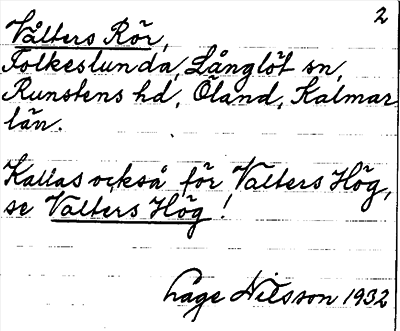 2
Vålters Rör,
Folkeslunda, Långlöt sn,
Runstens hd, Öland, Kalmar
län.
Kallas också för Valters Hög,
se Valters Hög!
Lage Nilsson 1932